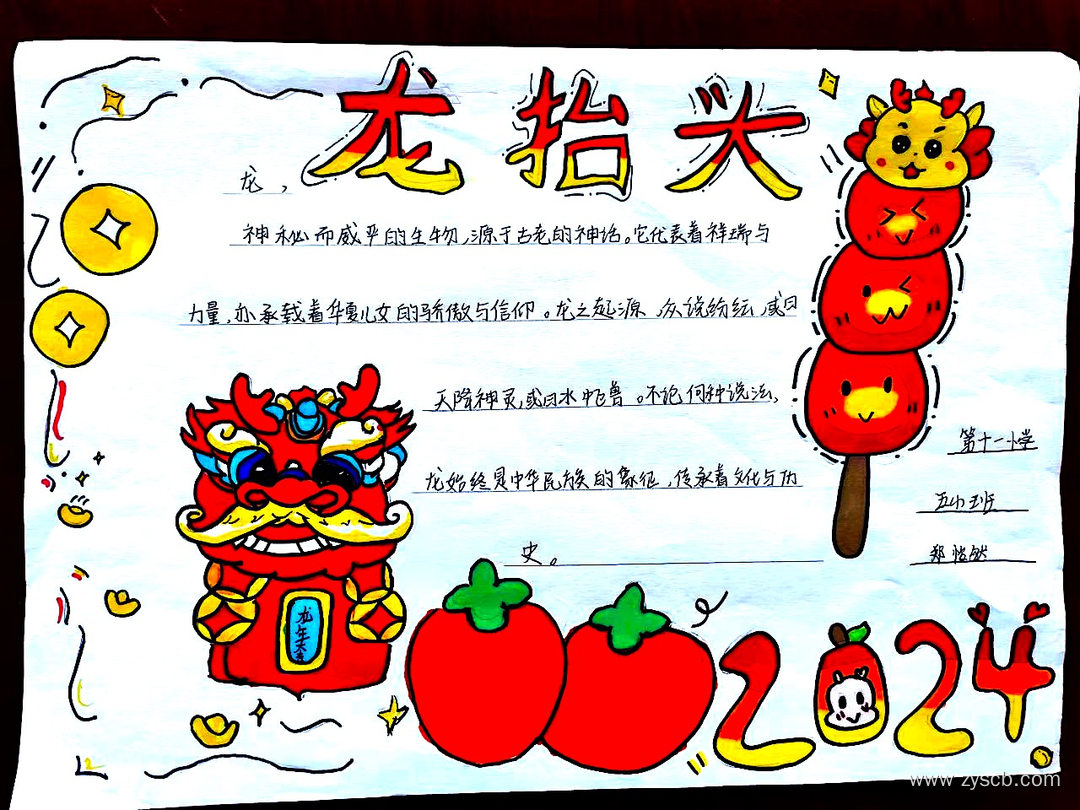 龙抬头
龙，
神秘而威严的生物，源于古老的神话。它代表着祥瑞与
力量，亦承载着华夏儿女的骄傲与信仰。龙之起源，众说纷纭，或曰
天降神灵，或曰水中巨兽。不论何种说法，
龙始终是中华民族的象征，传承着文化与历
史。
第十一小学
五(1)班
郑悠然
龙年大吉
2024
www.zyscb.com